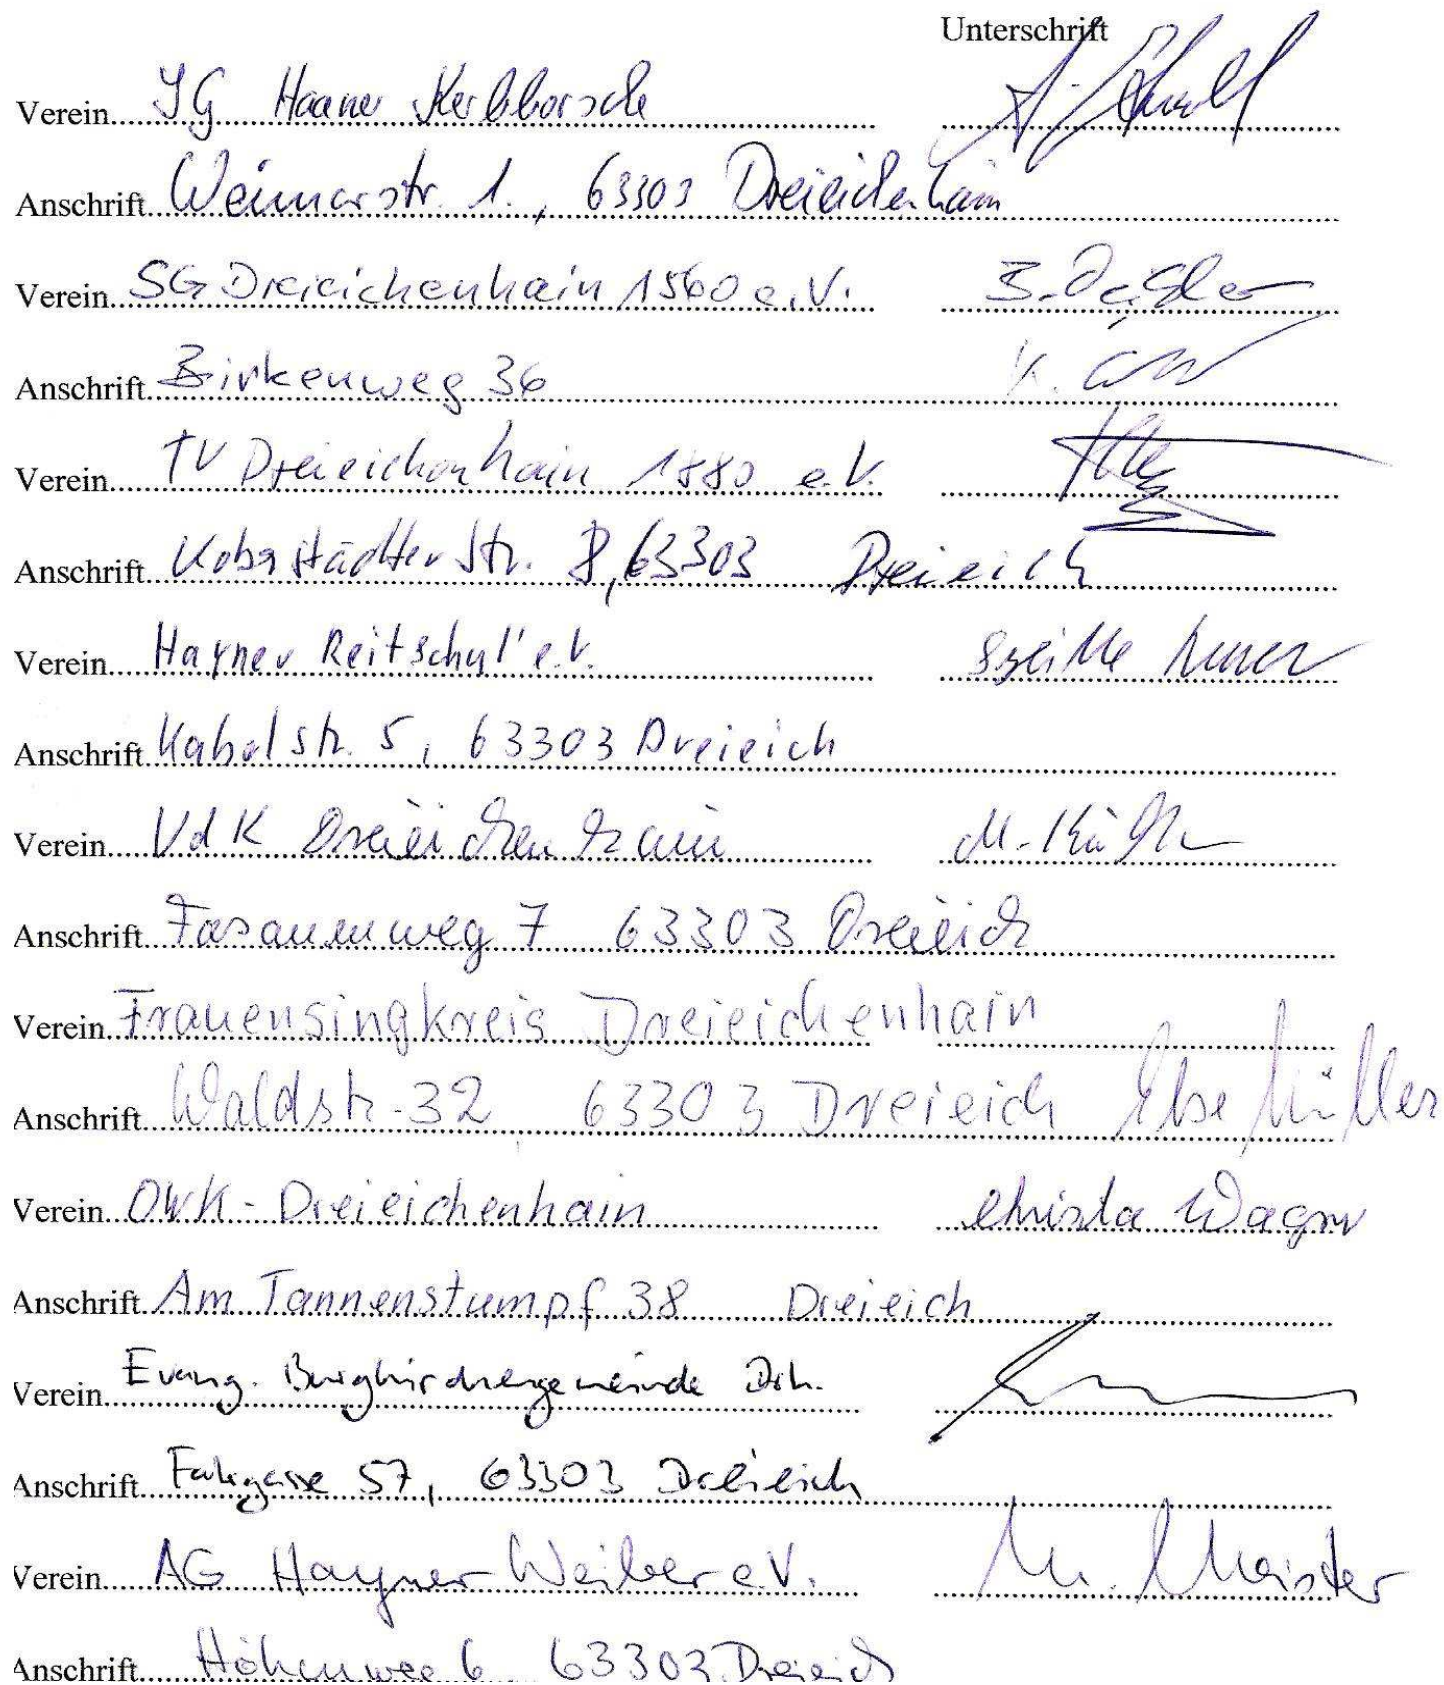 Unterschrift
Verein IG Haaner Kerbborsche
Anschrift Weimarstr. 1., 63303 Dreieichenhain
Verein SG Dreieichenhain 1560 e.V.
Anschrift Birkenweg 36
Verein TV Dreieichenhain 1880 e.V.
Anschrift Koberstädter Str. 8, 63303 Dreieich
Verein Hayner Reitschul' e.V.
Anschrift 5, 63303 Dreieich
Verein VdK Dreieichenhain M.
Anschrift Fasanenweg 7 63303 Dreieich
Verein Frauensingkreis Dreieichenhain
Anschrift Waldstr. 32 63303 Dreieich Else Müller
Verein OWK-Dreieichenhain Christa Wagner
Anschrift Am Tannenstumpf 38 Dreieich
Verein Evang. Burgkirchengemeinde Drh.
Anschrift Fahrgasse 57, 63303 Dreieich
Verein AG Hayner Weiber e.V. M. Meister
Anschrift Höhenweg 6 63303 Dreieich